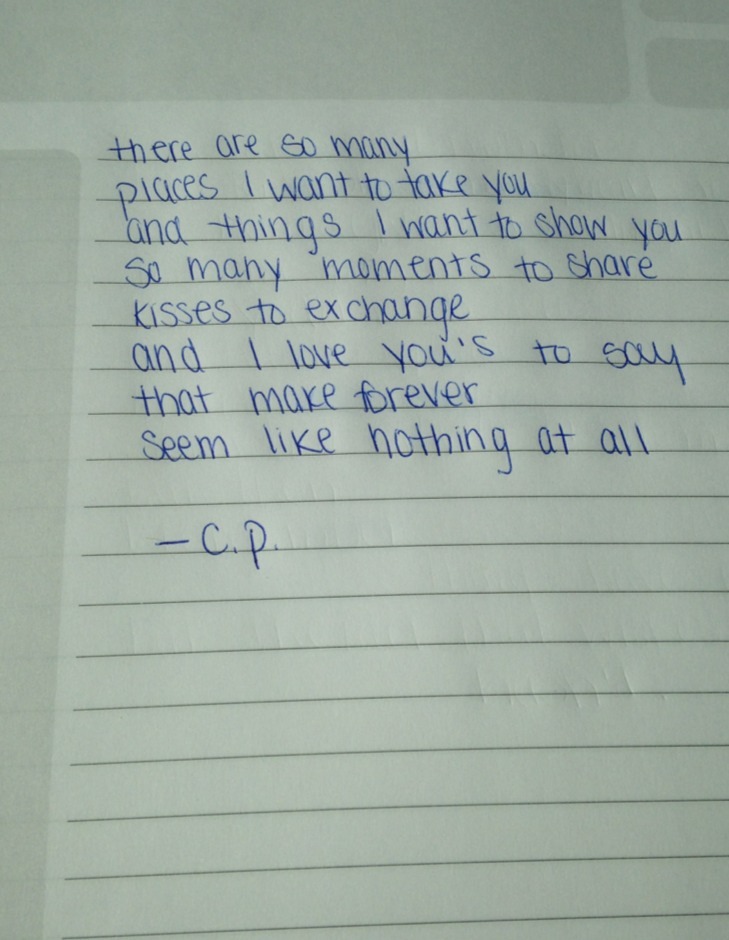 there are so many
places I want to take you
and things I want to show you
so many moments to share
kisses to exchange
and I love you's to say
that make forever
seem like nothing at all
– C.P.